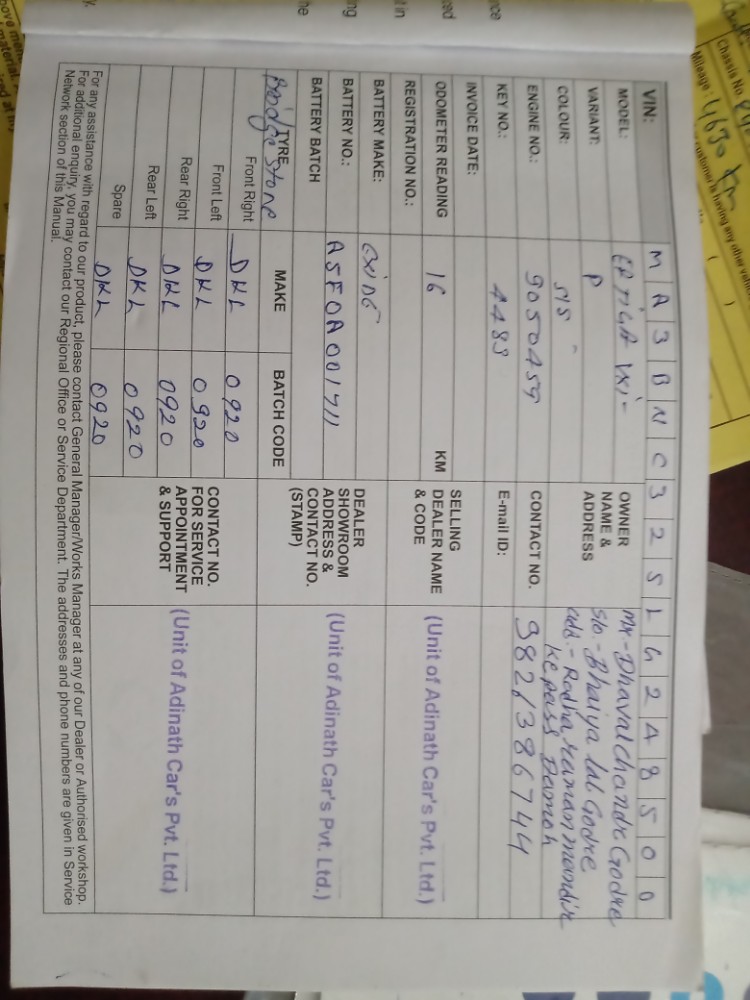 VIN: M A 3 B N C 3 2 S L G 2 4 8 5 0 0
MODEL: ERTIGA VXI-
VARIANT: P
COLOUR: S/S
ENGINE NO.: 9050459
KEY NO.: 4483
INVOICE DATE:
ODOMETER READING 16 KM
REGISTRATION NO.:
BATTERY MAKE: EXIDE
BATTERY NO.: A5F0A001711
BATTERY BATCH
TYRE MAKE BATCH CODE
Bridge Stone
Front Right DKL 0920
Front Left DKL 0920
Rear Right DKL 0920
Rear Left DKL 0920
Spare DKL 0920
OWNER
NAME &
ADDRESS
Mr- Dhaval chandr Godre
S/o- Bhaiya lal Godre
add.- Radha raman mandir
ke pass Damoh
CONTACT NO. 9826386744
E-mail ID:
SELLING
DEALER NAME
& CODE
(Unit of Adinath Car's Pvt. Ltd.)
DEALER
SHOWROOM
ADDRESS &
CONTACT NO.
(STAMP)
(Unit of Adinath Car's Pvt. Ltd.)
CONTACT NO.
FOR SERVICE
APPOINTMENT
& SUPPORT
(Unit of Adinath Car's Pvt. Ltd.)
For any assistance with regard to our product, please contact General Manager/Works Manager at any of our Dealer or Authorised workshop.
For additional enquiry, you may contact our Regional Office or Service Department. The addresses and phone numbers are given in Service
Network section of this Manual.
Chassis No
Mileage: 4630 Km
customer is having any other vehicle